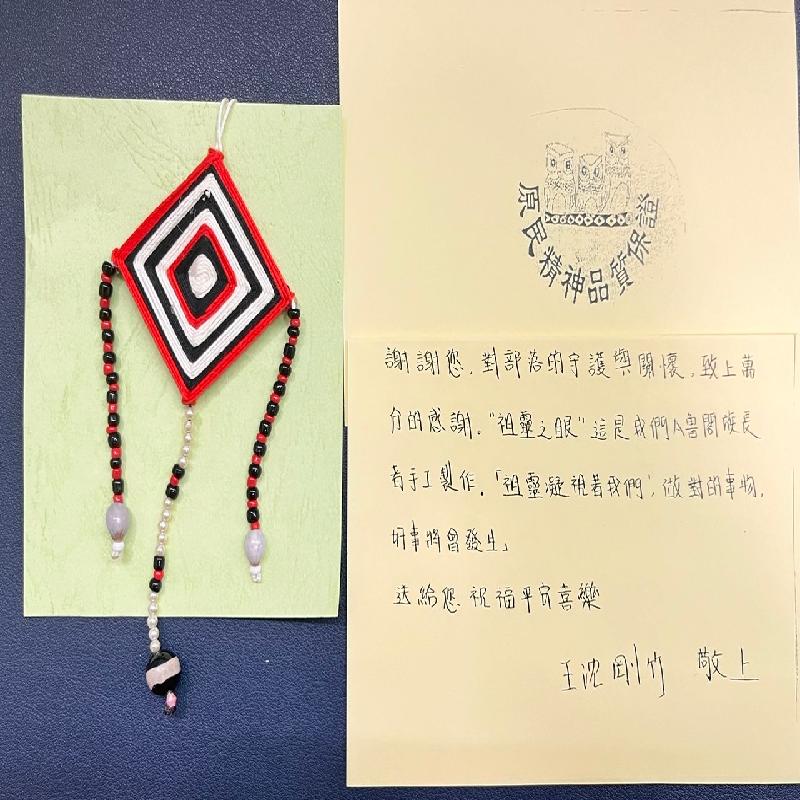 原民精神品質保證
謝謝您，對部落的守護與關懷，致上萬
分的感謝。"祖靈之眼"這是我們太魯閣族長
者手工製作。「祖靈凝視著我們，做對的事物，
好事將會發生」
送給您 祝福平安喜樂
王沈剛竹 敬上